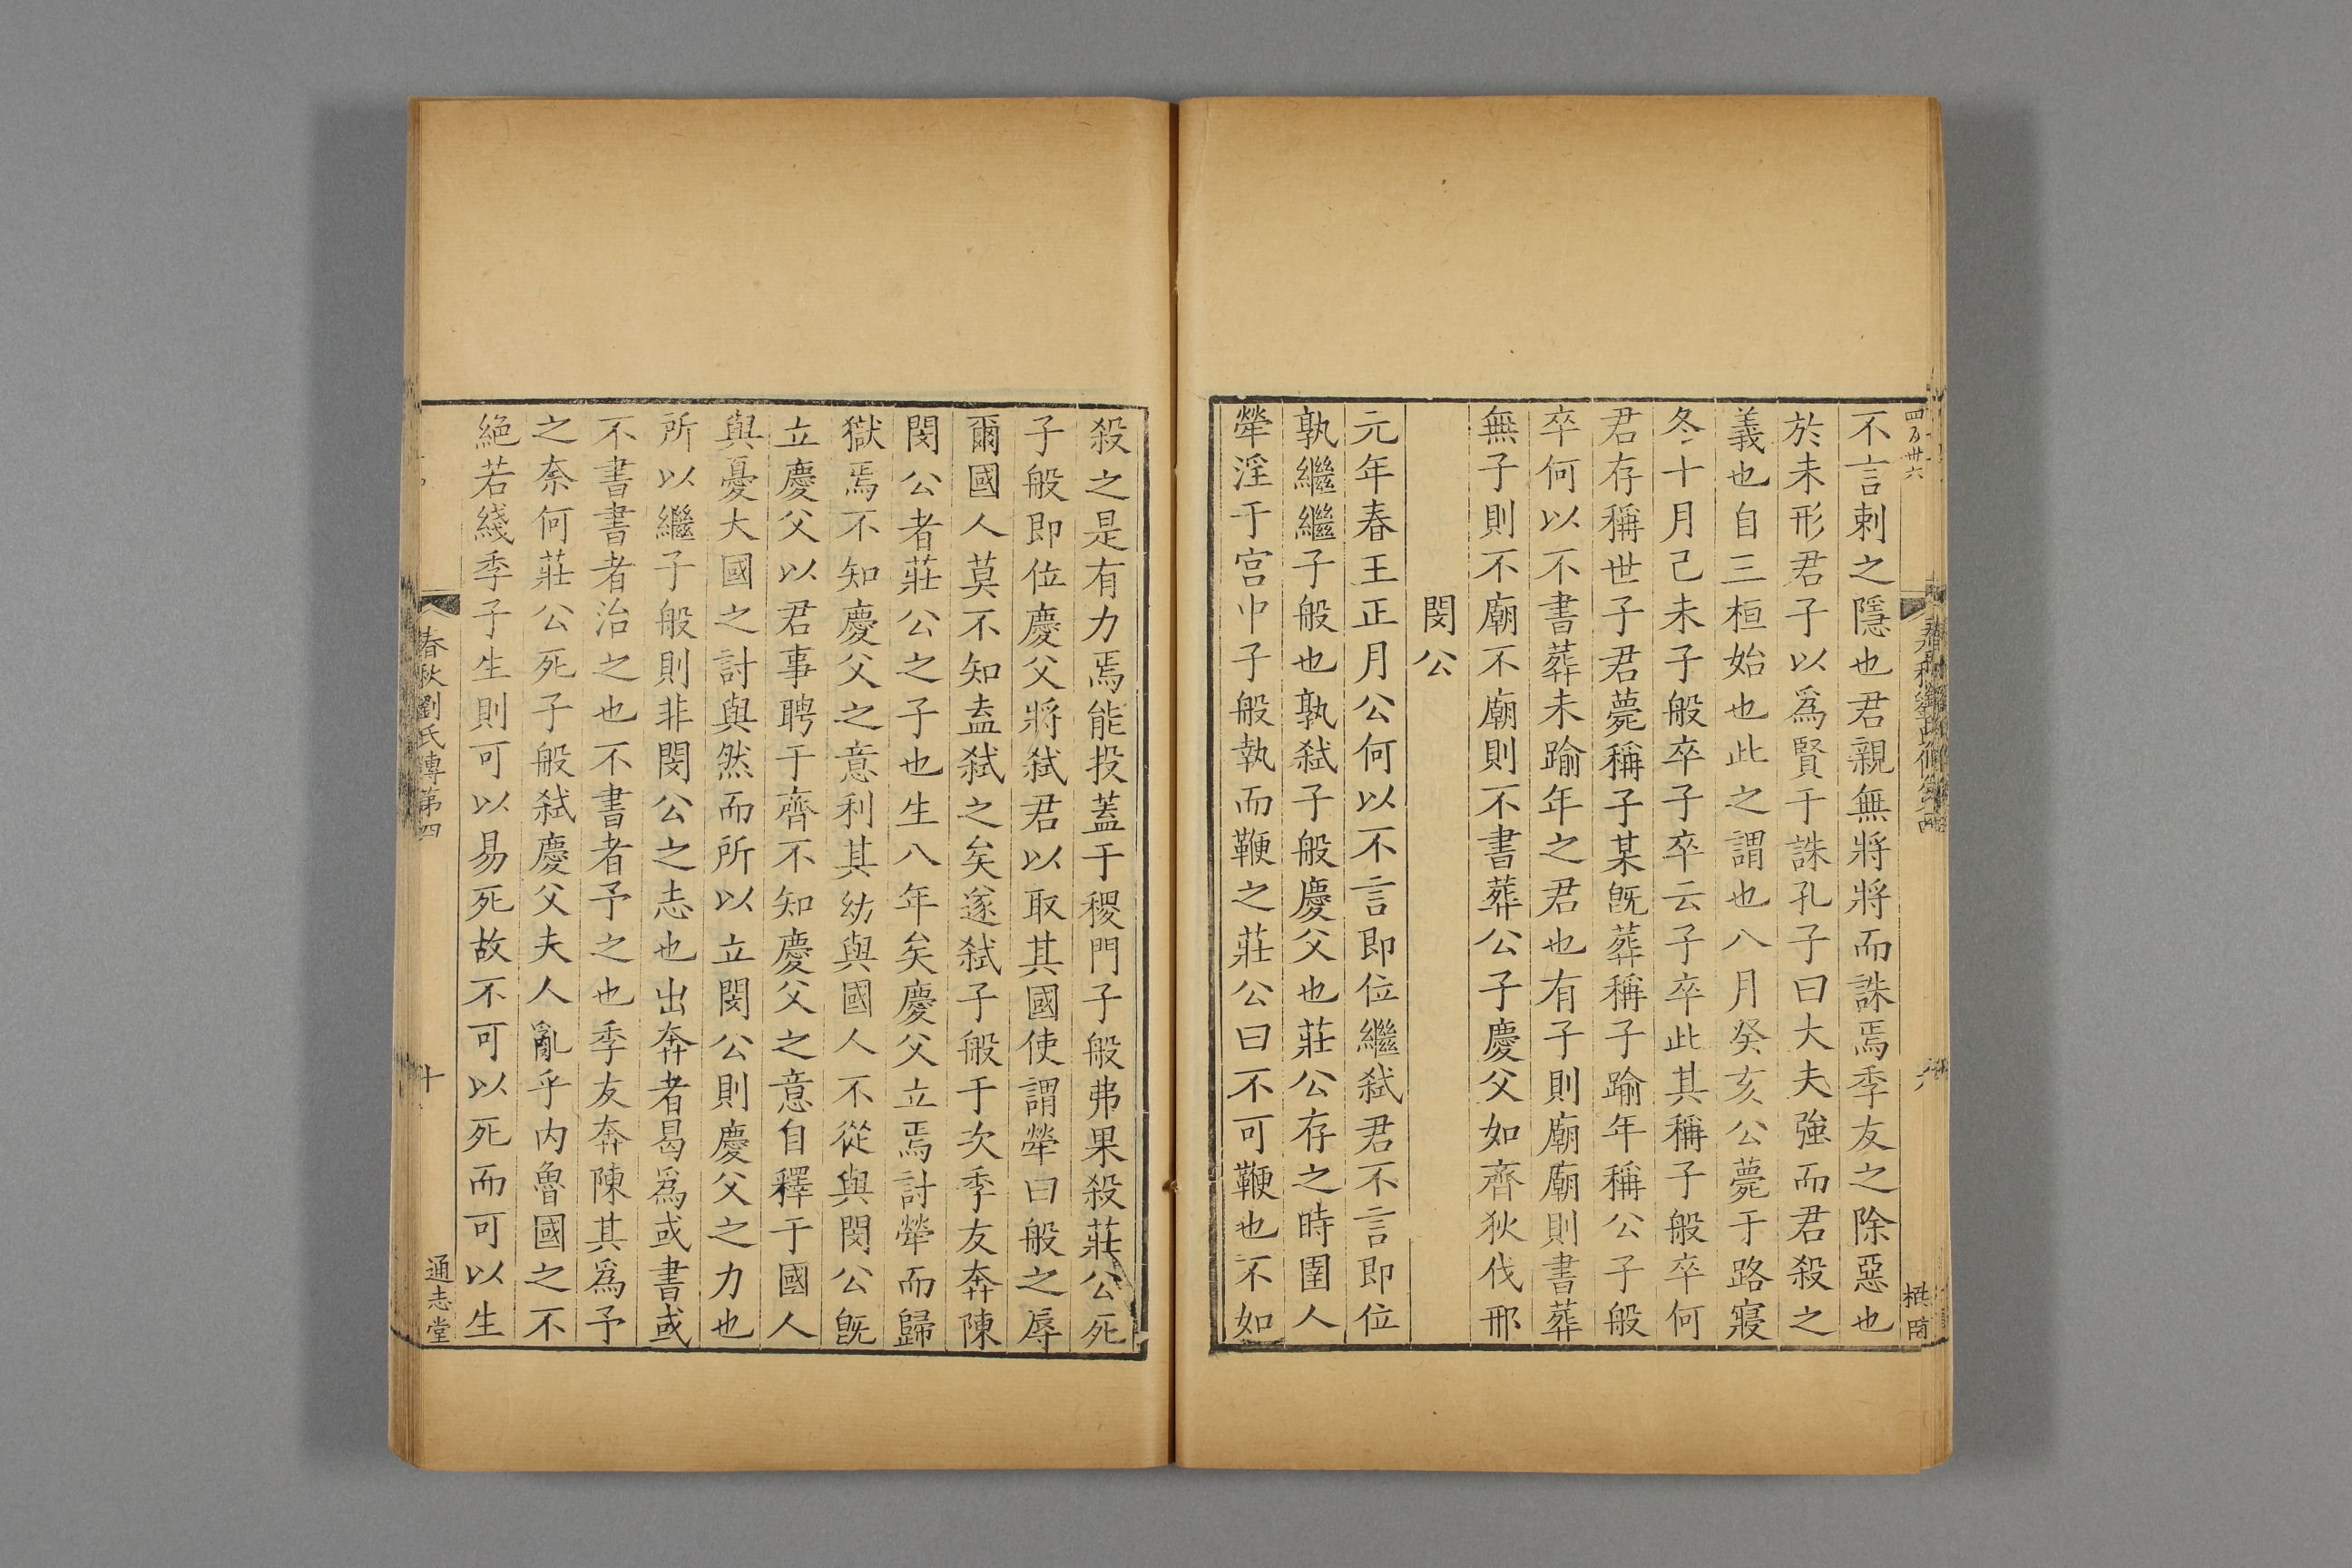 四百卅六
不言刺之隱也君親無將將而誅焉季友之除惡也
於未形君子以爲賢于誅孔子曰大夫強而君殺之
義也自三桓始也此之謂也八月癸亥公薨于路寢
冬十月己未子般卒子卒云子卒此其稱子般卒何
君存稱世子君薨稱子某旣葬稱子踰年稱公子般
卒何以不書葬未踰年之君也有子則廟廟則書葬
無子則不廟不廟則不書葬公子慶父如齊狄伐邢
閔公
元年春王正月公何以不言即位繼弒君不言即位
孰繼繼子般也孰弒子般慶父也莊公存之時圉人
犖淫于宫中子般執而鞭之莊公曰不可鞭也不如
殺之是有力焉能投蓋于稷門子般弗果殺莊公死
子般即位慶父將弒君以取其國使謂犖曰般之辱
爾國人莫不知盍弒之矣遂弒子般于次季友奔陳
閔公者莊公之子也生八年矣慶父立焉討犖而歸
獄焉不知慶父之意利其幼與國人不從與閔公旣
立慶父以君事聘于齊不知慶父之意自釋于國人
與憂大國之討與然而所以立閔公則慶父之力也
所以繼子般則非閔公之志也出奔者曷爲或書或
不書書者治之也不書者予之也季友奔陳其爲予
之柰何莊公死子般弒慶父夫人亂乎内魯國之不
絶若綫季子生則可以易死故不可以死而可以生
春秋劉氏傳第四
十
通志堂